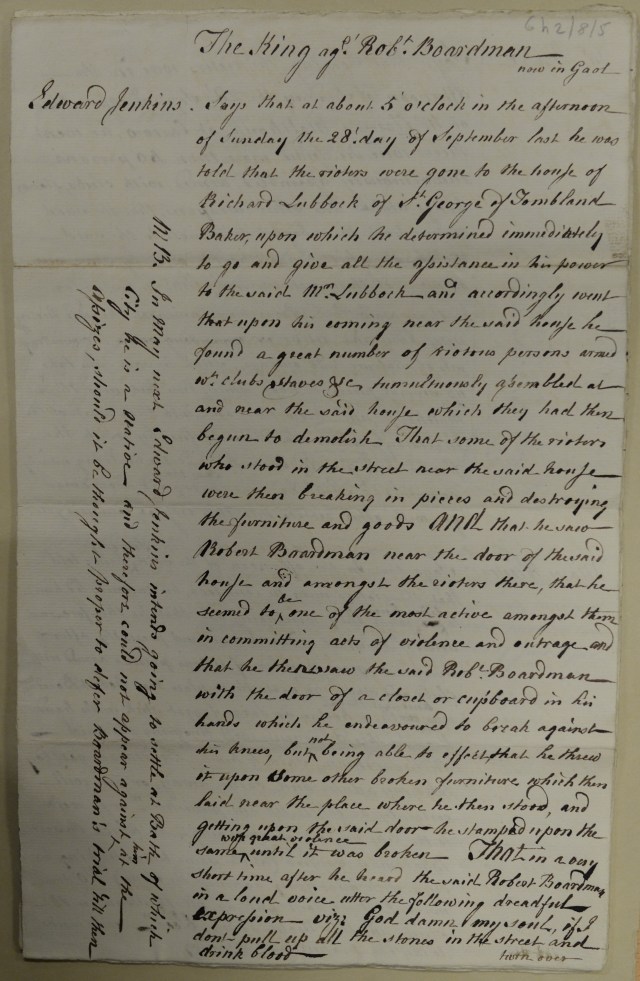 Ch2/8/5
The King agt. Robt. Boardman
now in Gaol
Edward Jenkins. Says that at about 5 o'clock in the afternoon
of Sunday the 28th. day of September last he was
told that the rioters were gone to the house of
Richard Lubbock of St. George of Tombland
Baker, upon which he determined immediately
to go and give all the assistance in his power
to the said Mr. Lubbock and accordingly went
that upon his coming near the said house he
found a great number of riotous persons armed
wth. clubs staves &c tumultuously assembled at
and near the said house which they had then
begun to demolish That some of the rioters
who stood in the street near the said house
were then breaking in pieces and destroying
the furniture and goods And that he saw
Robert Boardman near the door of the said
house and amongst the rioters there, that he
seemed to be one of the most active amongst them
in committing acts of violence and outrage and
that he then saw the said Robt. Boardman
with the door of a closet or cupboard in his
hands which he endeavoured to break against
his knees, but not being able to effect that he threw
it upon some other broken furniture which then
laid near the place where he then stood, and
getting upon the said door he stamped upon the
same with great violence until it was broken That in a very
short time after he heard the said Robert Boardman
in a loud voice utter the following dreadful
expression viz: God damn my soul, if I
don't pull up all the stones in the street and
drink blood
turn over
NB. In May next Edward Jenkins intends going to settle at Bath of which
City he is a Native and therefore could not appear against him at the
Assizes, should it be thought proper to defer Boardman's trial till then